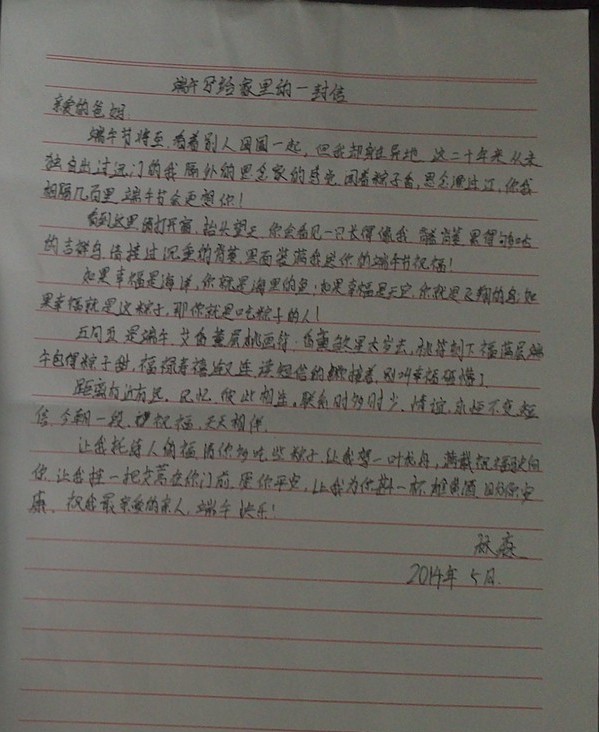 端午节给家里的一封信
亲爱的爸妈
端午节将至,看着别人团圆一起,但我却身在异地,这二十年来从未
独自出过远门的我,格外的思念家的身边,闻着粽子香,思念漂过江,你我
相隔几百里,端午节会更想你!
看到这里请打开窗,抬头望天,你会看见一只长得像我,背嘟
的吉祥鸟,沉重的背囊,里面装满我送你的端午节祝福!
如果幸福是海洋,你就是海里的鱼;如果幸福是天空,你就是飞翔的鸟;如
果幸福就是这粽子,那你就是吃粽子的人!
五月五是端午,艾香薰层桃画符,香里太岁去,桃符刻下福荫层端
午包得粽子甜,福禄寿禧敲又连,读短信的,别叫幸福
距离有近有远,记忆,彼此相连,联系时多时少,情谊,永恒不变,短
信,今朝一段,祝福,天天相伴
让我托诗人的福,请你多吃些粽子,让我驾一叶龙舟,满载祝福驶向
你,让我挂一把艾蒿在你门前,原你平安,让我为你斟一杯雄黄酒,安
康。祝我最亲爱的家人,端午快乐!
2014年5月